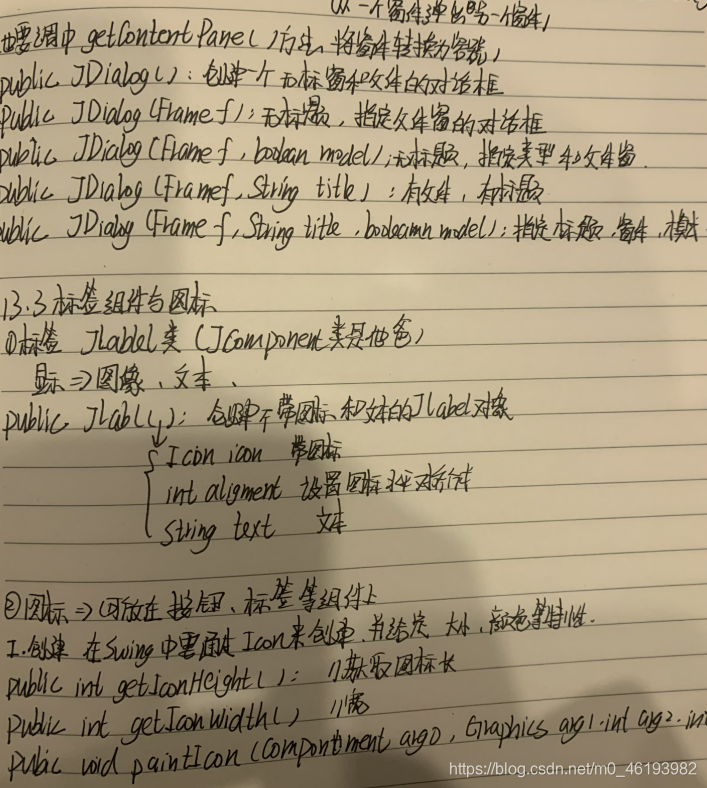 (从一个窗体弹出另一个窗体)
也要调中 getContentPane()方法, 将窗体转换为容器)
public JDialog(): 创建一个无标窗和父体的对话框
Public JDialog(Frame f): 无标题, 指定父体窗的对话框
public JDialog(Frame f, boolean model); 无标题, 指定类型和父体窗.
public JDialog (Frame f, String title): 有父体, 有标题
public JDialog (Frame f, String title, booleamn model): 指定标题, 窗体, 模式
13.3 标签组件与图标
①标签 JLabel类 (JComponent类是他爸)
显示⇒图像、文本、
public JLabl(): 创建不带图标和文本的Jlabel对象
Icon icon 带图标
int aligment 设置图标水平对齐方式
String text 文本
②图标⇒(可放在按钮、标签等组件上
I.创建 在Swing中需通过Icon来创建,并给定 大小、颜色等特性.
public int getIconHeight(): //获取图标长
public int getIconWidth() //宽
pubic void paintIcon (Compontment arg0, Graphics arg1.int arg2.in
https://blog.csdn.net/m0_46193982